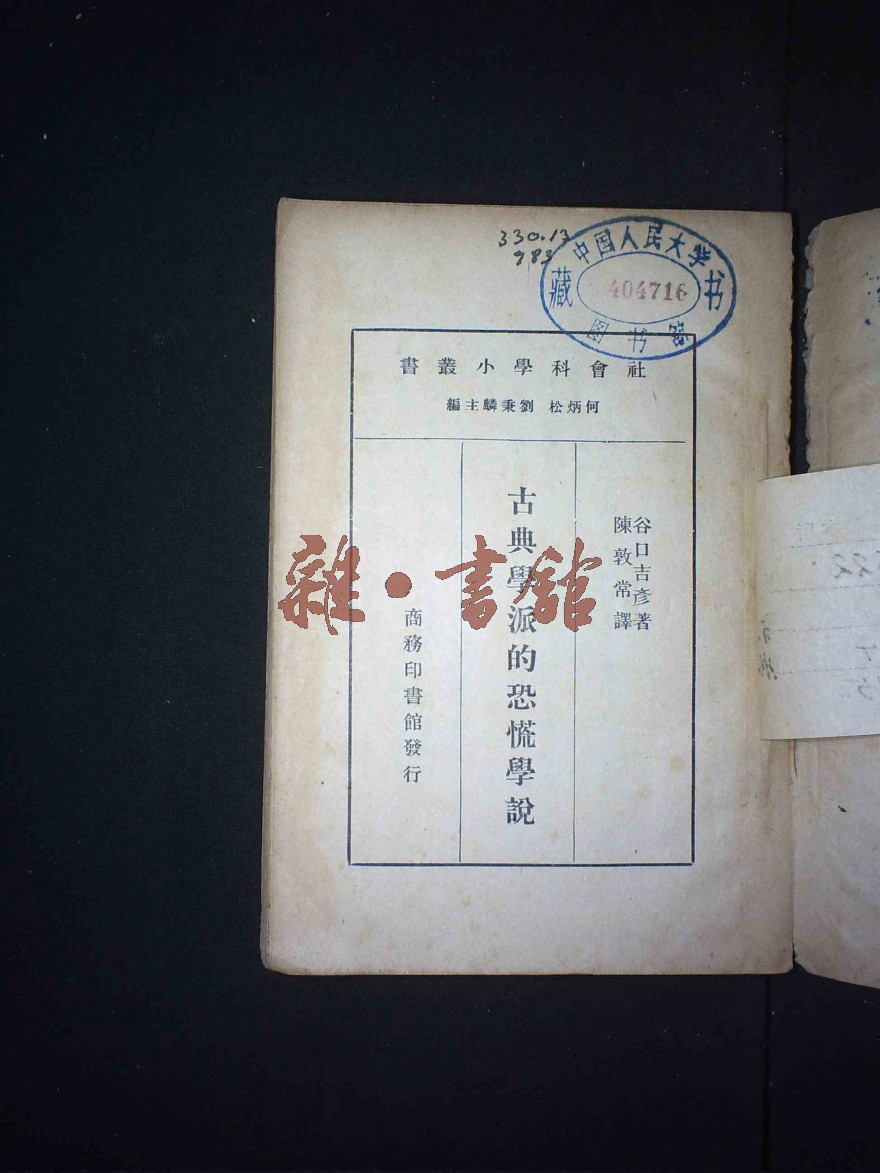 330.13
983
中国人民大学
藏 404716 书
图书馆
社會科學小叢書
何炳松 劉秉麟主編
谷口吉彥著
陳敦常譯
古典學派的恐慌學說
商務印書館發行
雜·書館